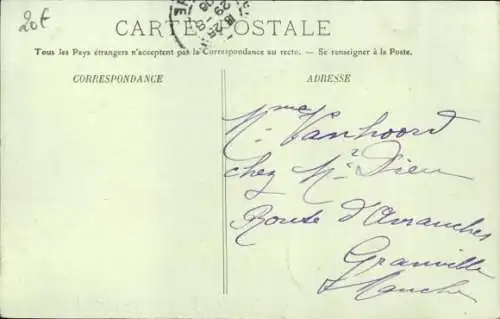 20€
CARTE POSTALE
Tous les Pays étrangers n'acceptent pas la Correspondance au recto. — Se renseigner à la Poste.
CORRESPONDANCE
ADRESSE
Mme Vanhoord
chez Mr Dieu
Route d'Avranches
Granville
Manche